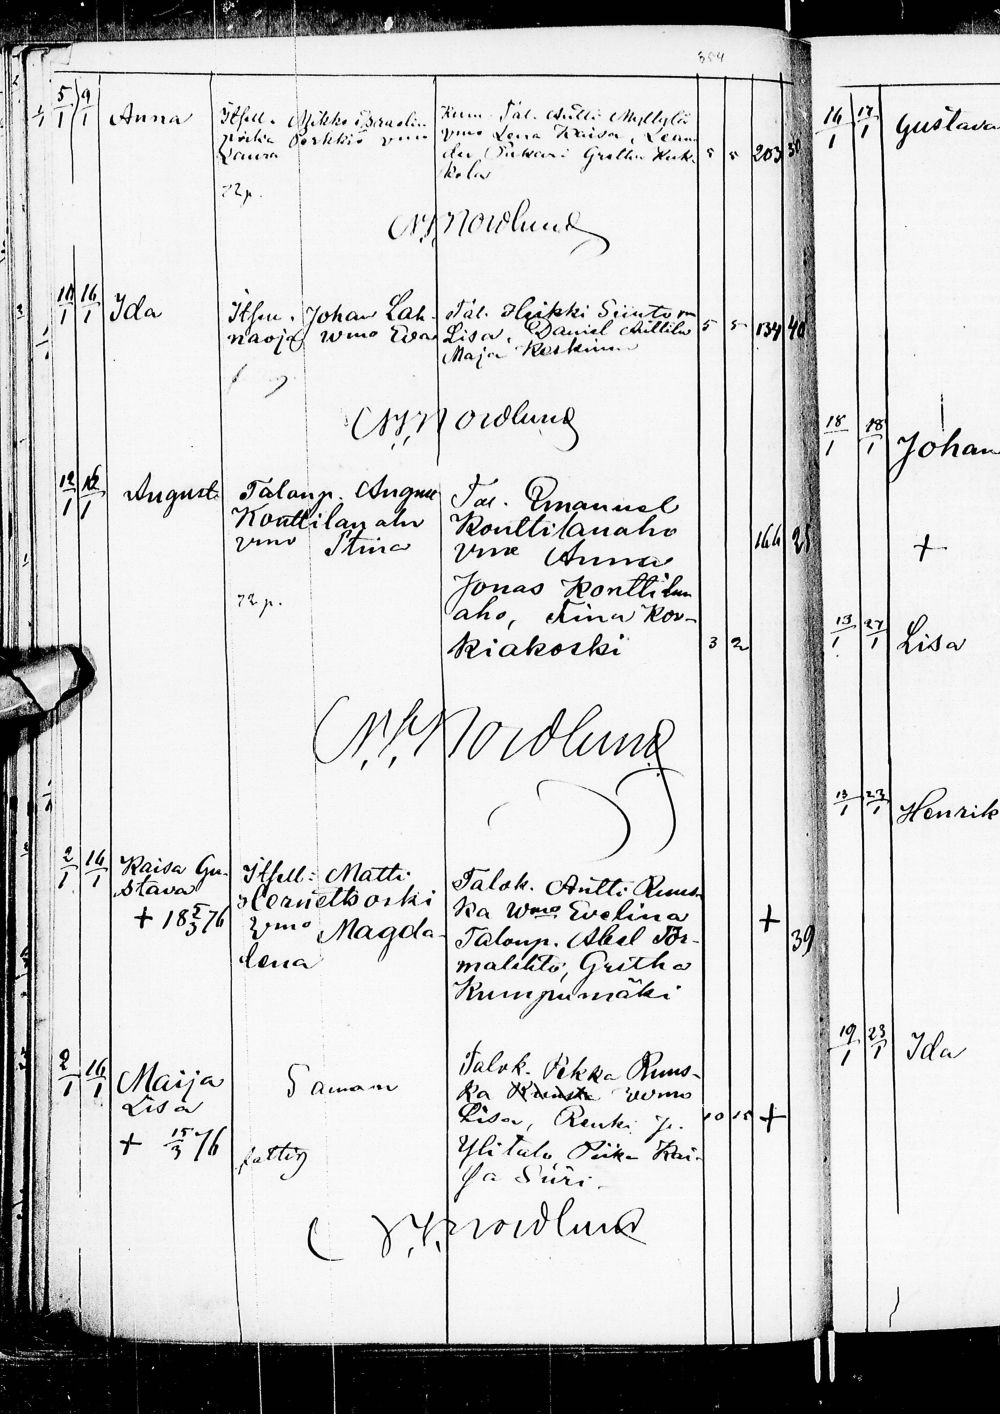 354
5/1 9/1 Anna
Mikko
vmo
Laura
Kum. Tal. Antti Myllylä
vmo Lena Kaisa,
Gretha
kola
5 5 203 38
72 p.
Nordlund
16/1 Ida
Johan Lah-
naoja vmo Eva
Tal. Heikki
Lisa, Daniel Anttila
Maja Keskinen
5 5 134 40
Nordlund
12/1 16/1 August
Talonp. August
Konttilanaho
vmo Stina
72 p.
Tal. Emanuel
Konttilanaho
vmo Anna
Jonas Konttilan
aho, Kor-
kiakoski
3 2
166 25
Nordlund
2/1 16/1 Kaisa Gu-
stava
+ 18 5/3 76
Itsell. Matti
vmo Magda-
lena
Talok. Antti Ruus-
ka Wmo Evelina
Talonp. Abel Tör-
mälehto, Gretha
Kumpumäki
+
39
2/1 16/1 Maija
Lisa
+ 15/3 76
Saman
fattig
Talok. Pekka Ruus-
ka vmo
Lisa, Renki
Ylitalo, Piika Kai-
sa Siiri
10 15 +
Nordlund
16/1 17/1 Gustava
18/1 18/1 Johan
+
13/1 27/1 Lisa
13/1 23/1 Henrik
19/1 23/1 Ida